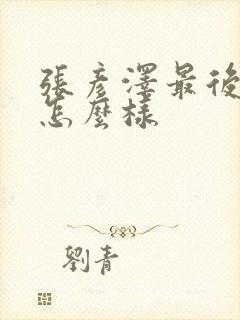 張彥澤最後
怎麼樣
劉青